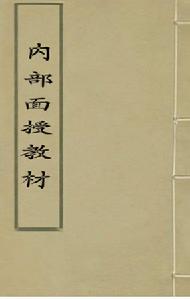 内部面授教材